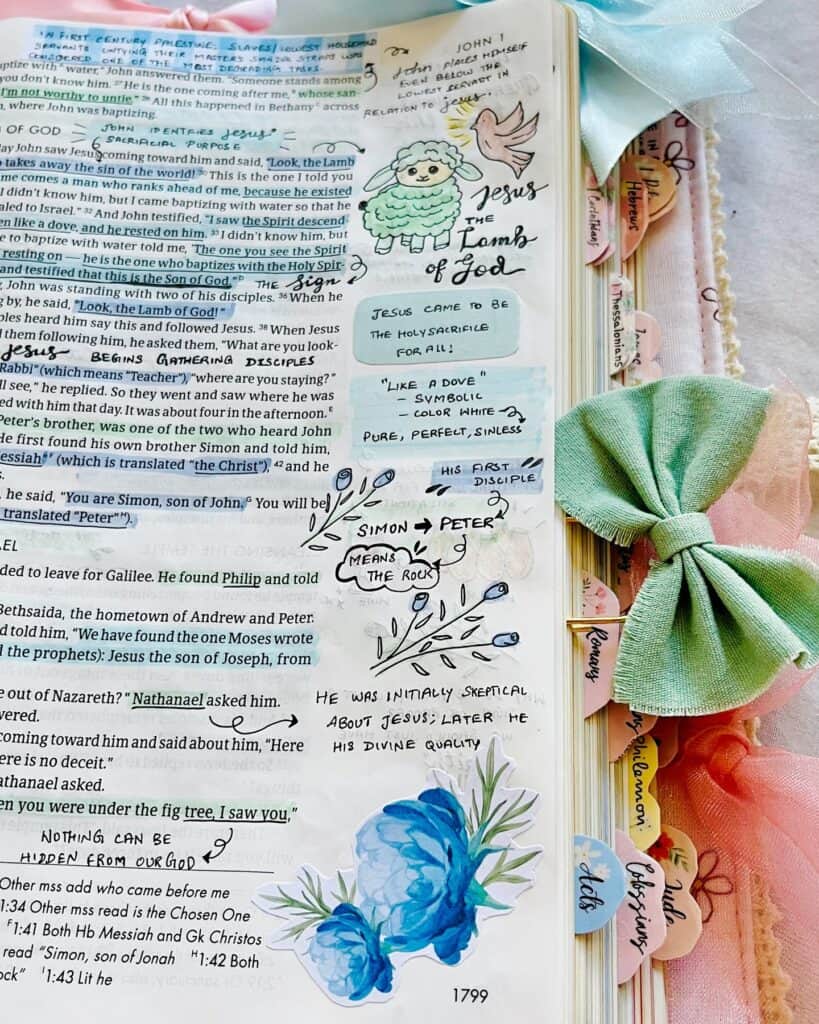 IN FIRST CENTURY PALESTINE; SLAVES/LOWEST HOUSEHOLD
SERVANTS UNTYING THEIR MASTERS SANDAL STRAPS WAS
CONSIDERED ONE OF THE MOST DEGRADING TASKS.
baptize with water," John answered them. "Someone stands among
you don't know him. 27 He is the one coming after me, whose san-
I'm not worthy to untie." 28 All this happened in Bethany across
, where John was baptizing.
N OF GOD
JOHN IDENTIFIES Jesus'
SACRIFICIAL PURPOSE
day John saw Jesus coming toward him and said, "Look, the Lamb
o takes away the sin of the world! 30 This is the one I told you
me comes a man who ranks ahead of me, because he existed
I didn't know him, but I came baptizing with water so that he
ealed to Israel." 32 And John testified, "I saw the Spirit descend-
en like a dove, and he rested on him. 33 I didn't know him, but
e to baptize with water told me, 'The one you see the Spirit
resting on — he is the one who baptizes with the Holy Spir-
and testified that this is the Son of God." D
THE Sign
, John was standing with two of his disciples. 36 When he
g by, he said, "Look, the Lamb of God!"
ples heard him say this and followed Jesus. 38 When Jesus
d them following him, he asked them, "What are you look-
Jesus BEGINS GATHERING DISCIPLES
Rabbi" (which means "Teacher"), "where are you staying?"
ll see," he replied. So they went and saw where he was
ed with him that day. It was about four in the afternoon. E
Peter's brother, was one of the two who heard John
He first found his own brother Simon and told him,
essiah" F (which is translated "the Christ"), 42 and he
s.
, he said, "You are Simon, son of John. G You will be
translated "Peter" H).
AEL
ded to leave for Galilee. He found Philip and told
Bethsaida, the hometown of Andrew and Peter.
d told him, "We have found the one Moses wrote
d the prophets): Jesus the son of Joseph, from
e out of Nazareth?" Nathanael asked him.
wered.
coming toward him and said about him, "Here
ere is no deceit."
athanael asked.
en you were under the fig tree, I saw you,"
NOTHING CAN BE
HIDDEN FROM OUR GOD
Other mss add who came before me
1:34 Other mss read is the Chosen One
F 1:41 Both Hb Messiah and Gk Christos
read "Simon, son of Jonah H 1:42 Both
ock" I 1:43 Lit he
1799
JOHN 1
John PLACES HIMSELF
EVEN BELOW THE
LOWEST SERVANT IN
RELATION TO jesus.
Jesus
THE
Lamb
of God
JESUS CAME TO BE
THE HOLY SACRIFICE
FOR ALL!
"LIKE A DOVE"
– SYMBOLIC
– COLOR WHITE
PURE, PERFECT, SINLESS
HIS FIRST
DISCIPLE
SIMON → PETER
MEANS
THE ROCK
HE WAS INITIALLY SKEPTICAL
ABOUT JESUS; LATER HE
HIS DIVINE QUALITY
Hebrews
Thessalonians
Romans
Philemon
Acts
Colossians
Jude